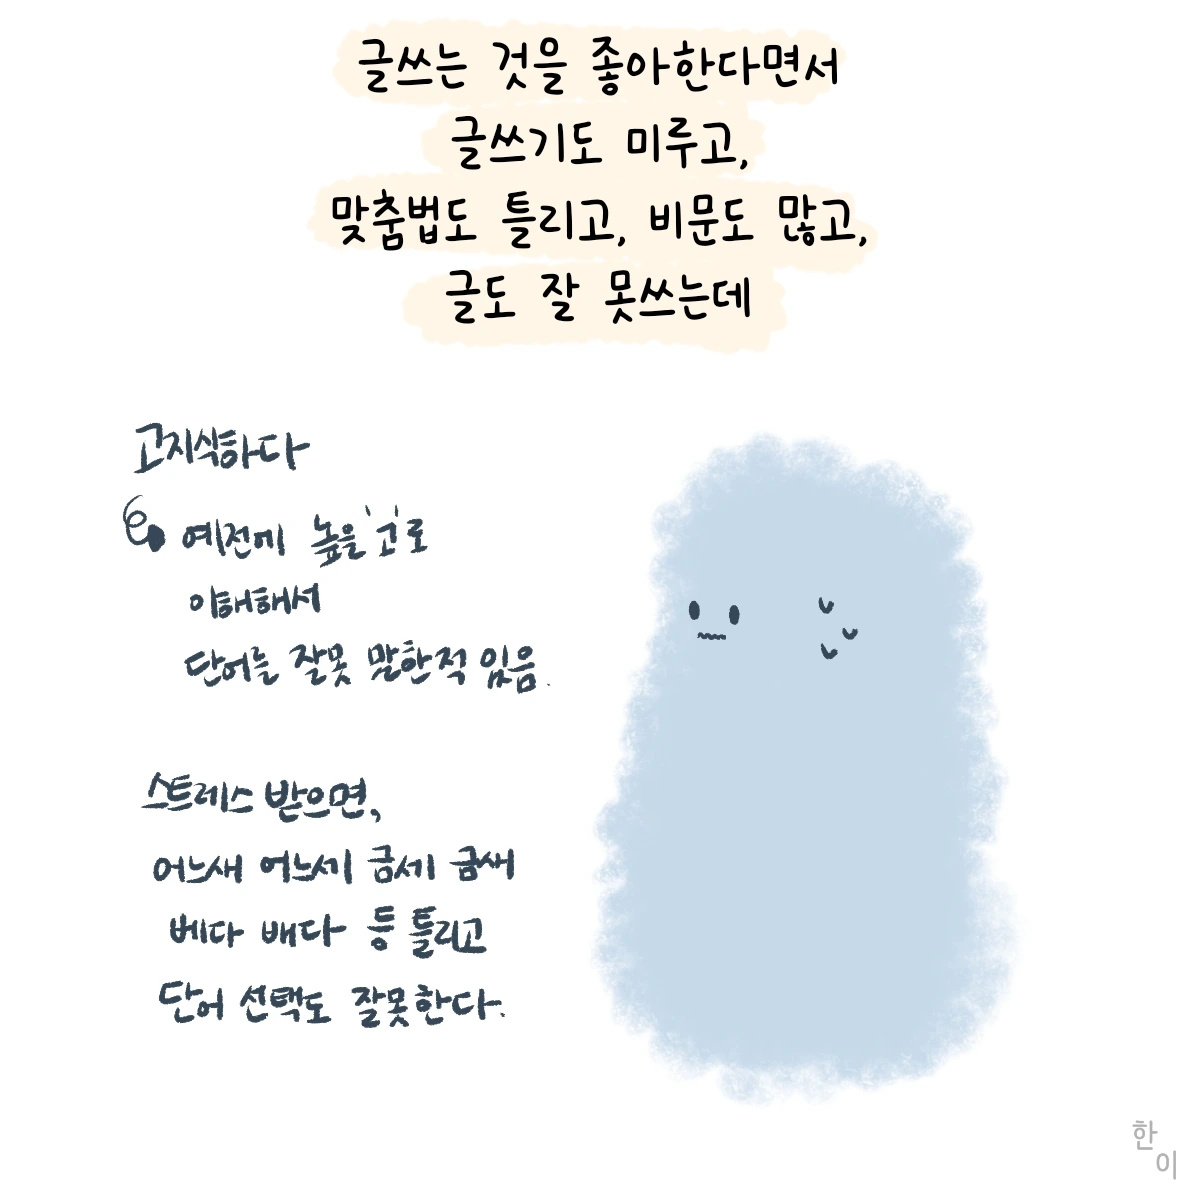 글쓰는 것을 좋아한다면서
글쓰기도 미루고,
맞춤법도 틀리고, 비문도 많고,
글도 잘 못쓰는데
고지식하다
예전에 높을 '고'로
이해해서
단어를 잘못 말한적 있음.
스트레스 받으면,
어느새 어느세 금세 금새
베다 배다 등 틀리고
단어 선택도 잘못한다.
한
이